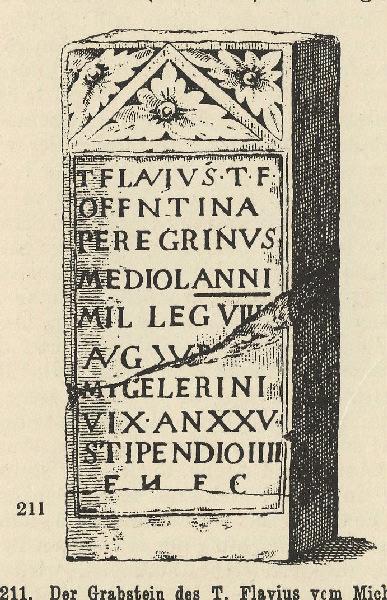 T·FLAVIVS·T·F·
OFFNTINA
PEREGRINVS
MEDIOLANNI
MIL LEG VIII
AVG
M·CELERINI
VIX·ANXXV
STIPENDIOIIII
E H F C
211
211. Der Grabstein des T. Flavius vom Mich